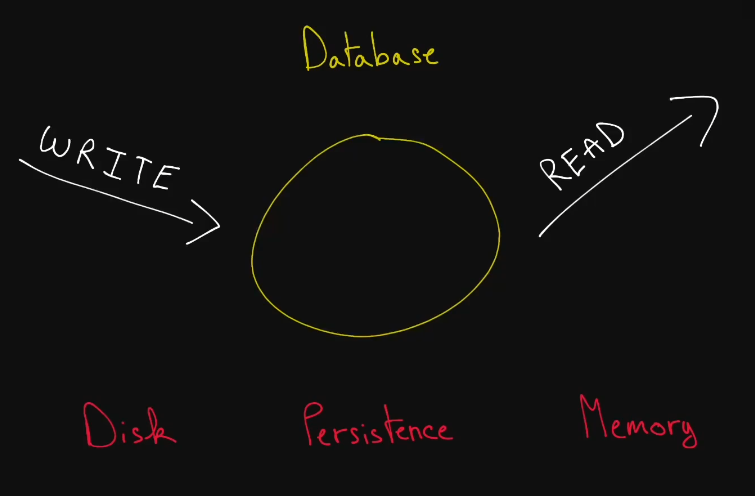 Database
WRITE
READ
Disk Persistence Memory